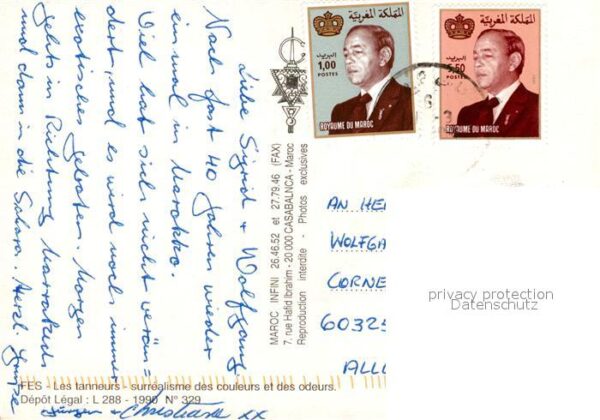 Liebe Sigrid + Wolfgang
Nach fast 40 Jahren wieder
einmal in Marokko.
Viel hat sich nicht verän=
dert, und es wird noch immer
exotisches geboten. Morgen
geht's in Richtung Marrakech
und dann in die Sahara. Herzl. Grüsse
Jürgen + Christiane xx
FES - Les tanneurs - surréalisme des couleurs et des odeurs.
Dépôt Légal : L 288 - 1990 N° 329
MAROC INFINI 26.46.52 et 27.79.46 (FAX)
7, rue Hafid Ibrahim - 20 000 CASABALNCA - Maroc
Reproduction interdite - Photos exclusives
المملكة المغربية
البريد
1,00
POSTES
ROYAUME DU MAROC
المملكة المغربية
البريد
5,50
POSTES
ROYAUME DU MAROC
AN HE
WOLFGA
CORNE
60325
ALL
privacy protection
Datenschutz